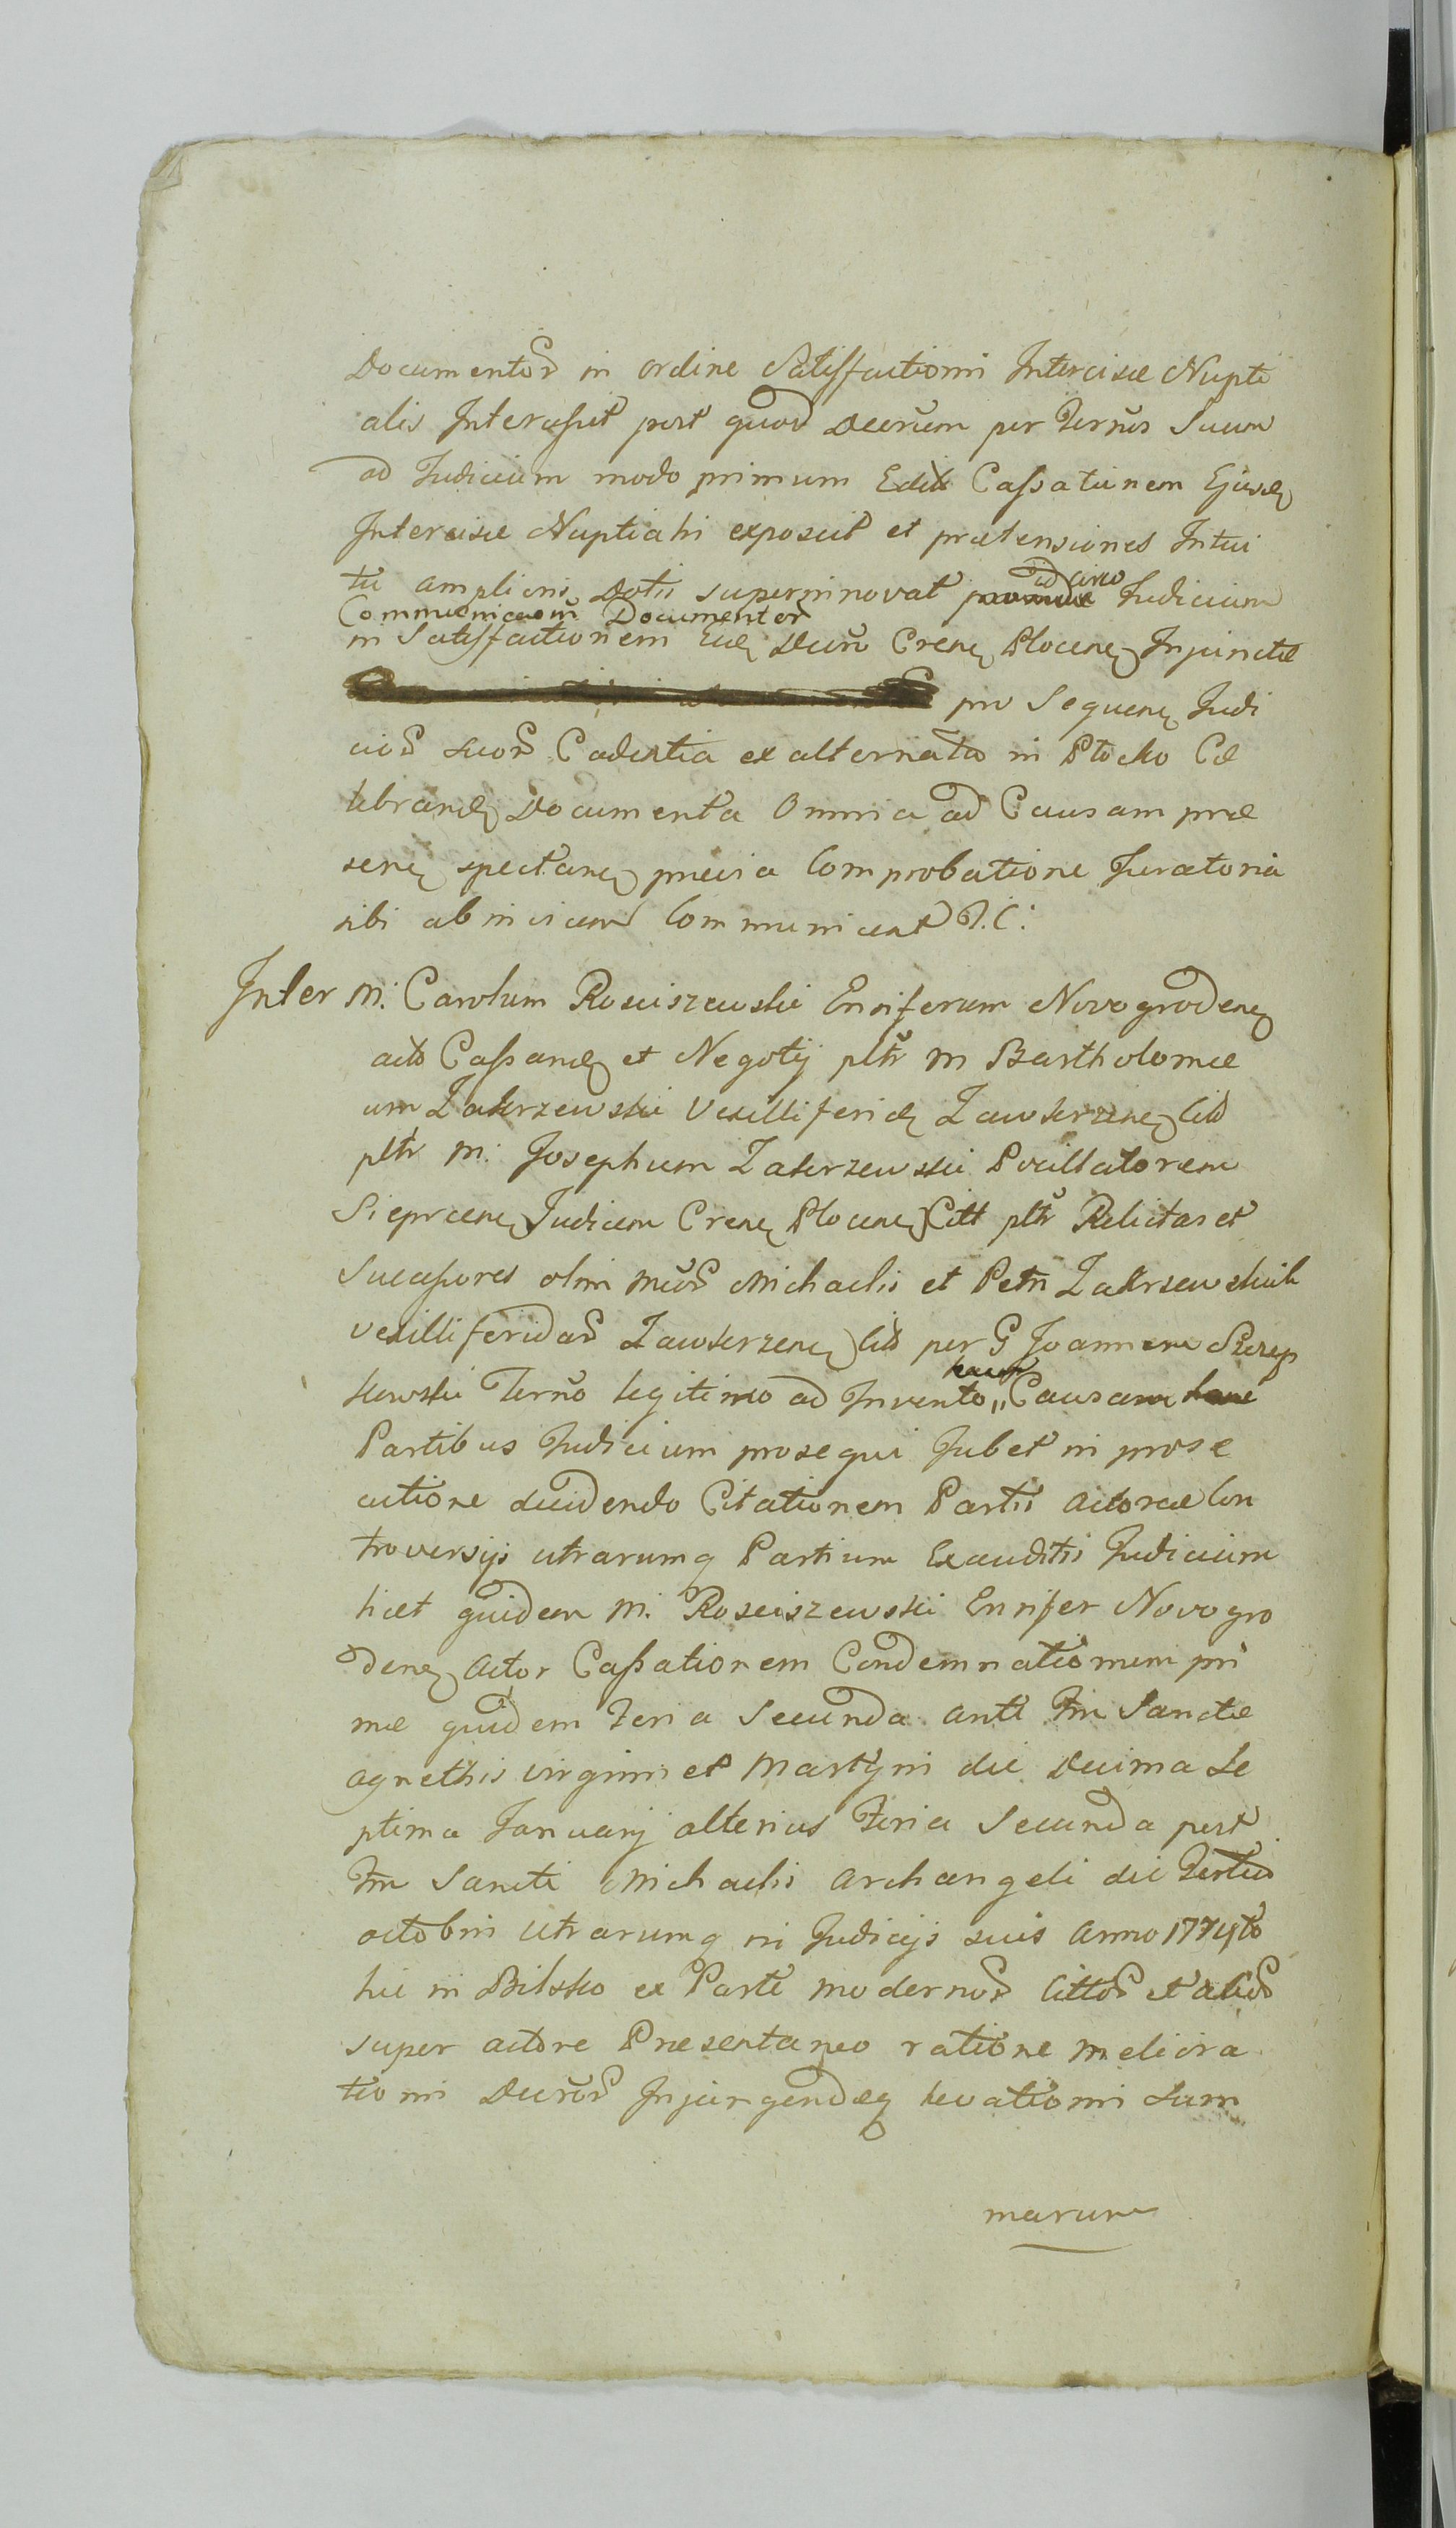 Documentor̃ in ordine Satisfactioni Intercisæ Nupti
alis Interfuit post quod decretũm per Termũs Suum
ad Judicium modo primum Edit Cassationem Ejusdꝫ
Intercisæ Nuptiali exposuit et prætensiones Intui
tu amplioris Dotis superninnovat idcirco Judicium
Communicaoni Documentor̃
in Satisfactionem Decr̃o Crenꝫ Plocenꝫ Injunctæ
pro Sequenꝫ Judi
cior̃ suor̃ Cadentia ex alternata in Płocko Ce
lebrandꝫ Documenta Omnia ad Causam præ
senꝫ spectanꝫ prævia Comprobatione Juratoria
sibi ab invicem Communicent J.C:
Inter M: Carolum Rosciszewski Ensiferum Novogrodenꝫ
actō Cassandꝫ et Negotij pltr̃ M Bartholomæ
um Zakrzewski Vexilliferidꝫ Zawkrzenꝫ Citt
pltr̃ M: Josephum Zakrzewski Pocillatorem
Sieprcenꝫ Judicem Crenꝫ Plocenꝫ Citt pltr̃ Relictas et
Successores olim Mcor̃ Michaelis et Petri Zakrzewskich
Vexilliferidar̃ Zawkrzenꝫ Citt per G Joannem Szczep
kowski Termo legitimo ad Invento hanc Causam
Partibus Judicium prosequi Jubet in prose
cutione decidendo Citationem Partis actoreæ Con
troversijs utrarumq Partium Exauditis Judicium
licet quidem M. Rosciszewski Ensifer Novogro
denꝫ Actor Cassationem Condemnationum pri
mæ quidem Feria Secunda ante Fm Sanctæ
Agnethis virginis et Martyris die Decima Se
ptima Januarij alterius Feria Secunda post
Fm Sancti Michaelis Archangeli die Tertia
octobris utrarumq in Judicijs suis Anno 1774to
hic in Bilsko ex Parte modernor̃ Cittor̃ et alior̃
super actore Præsentaneo ratione meliora
tionis Decretor̃ Injungendæq levationis Sum
marum